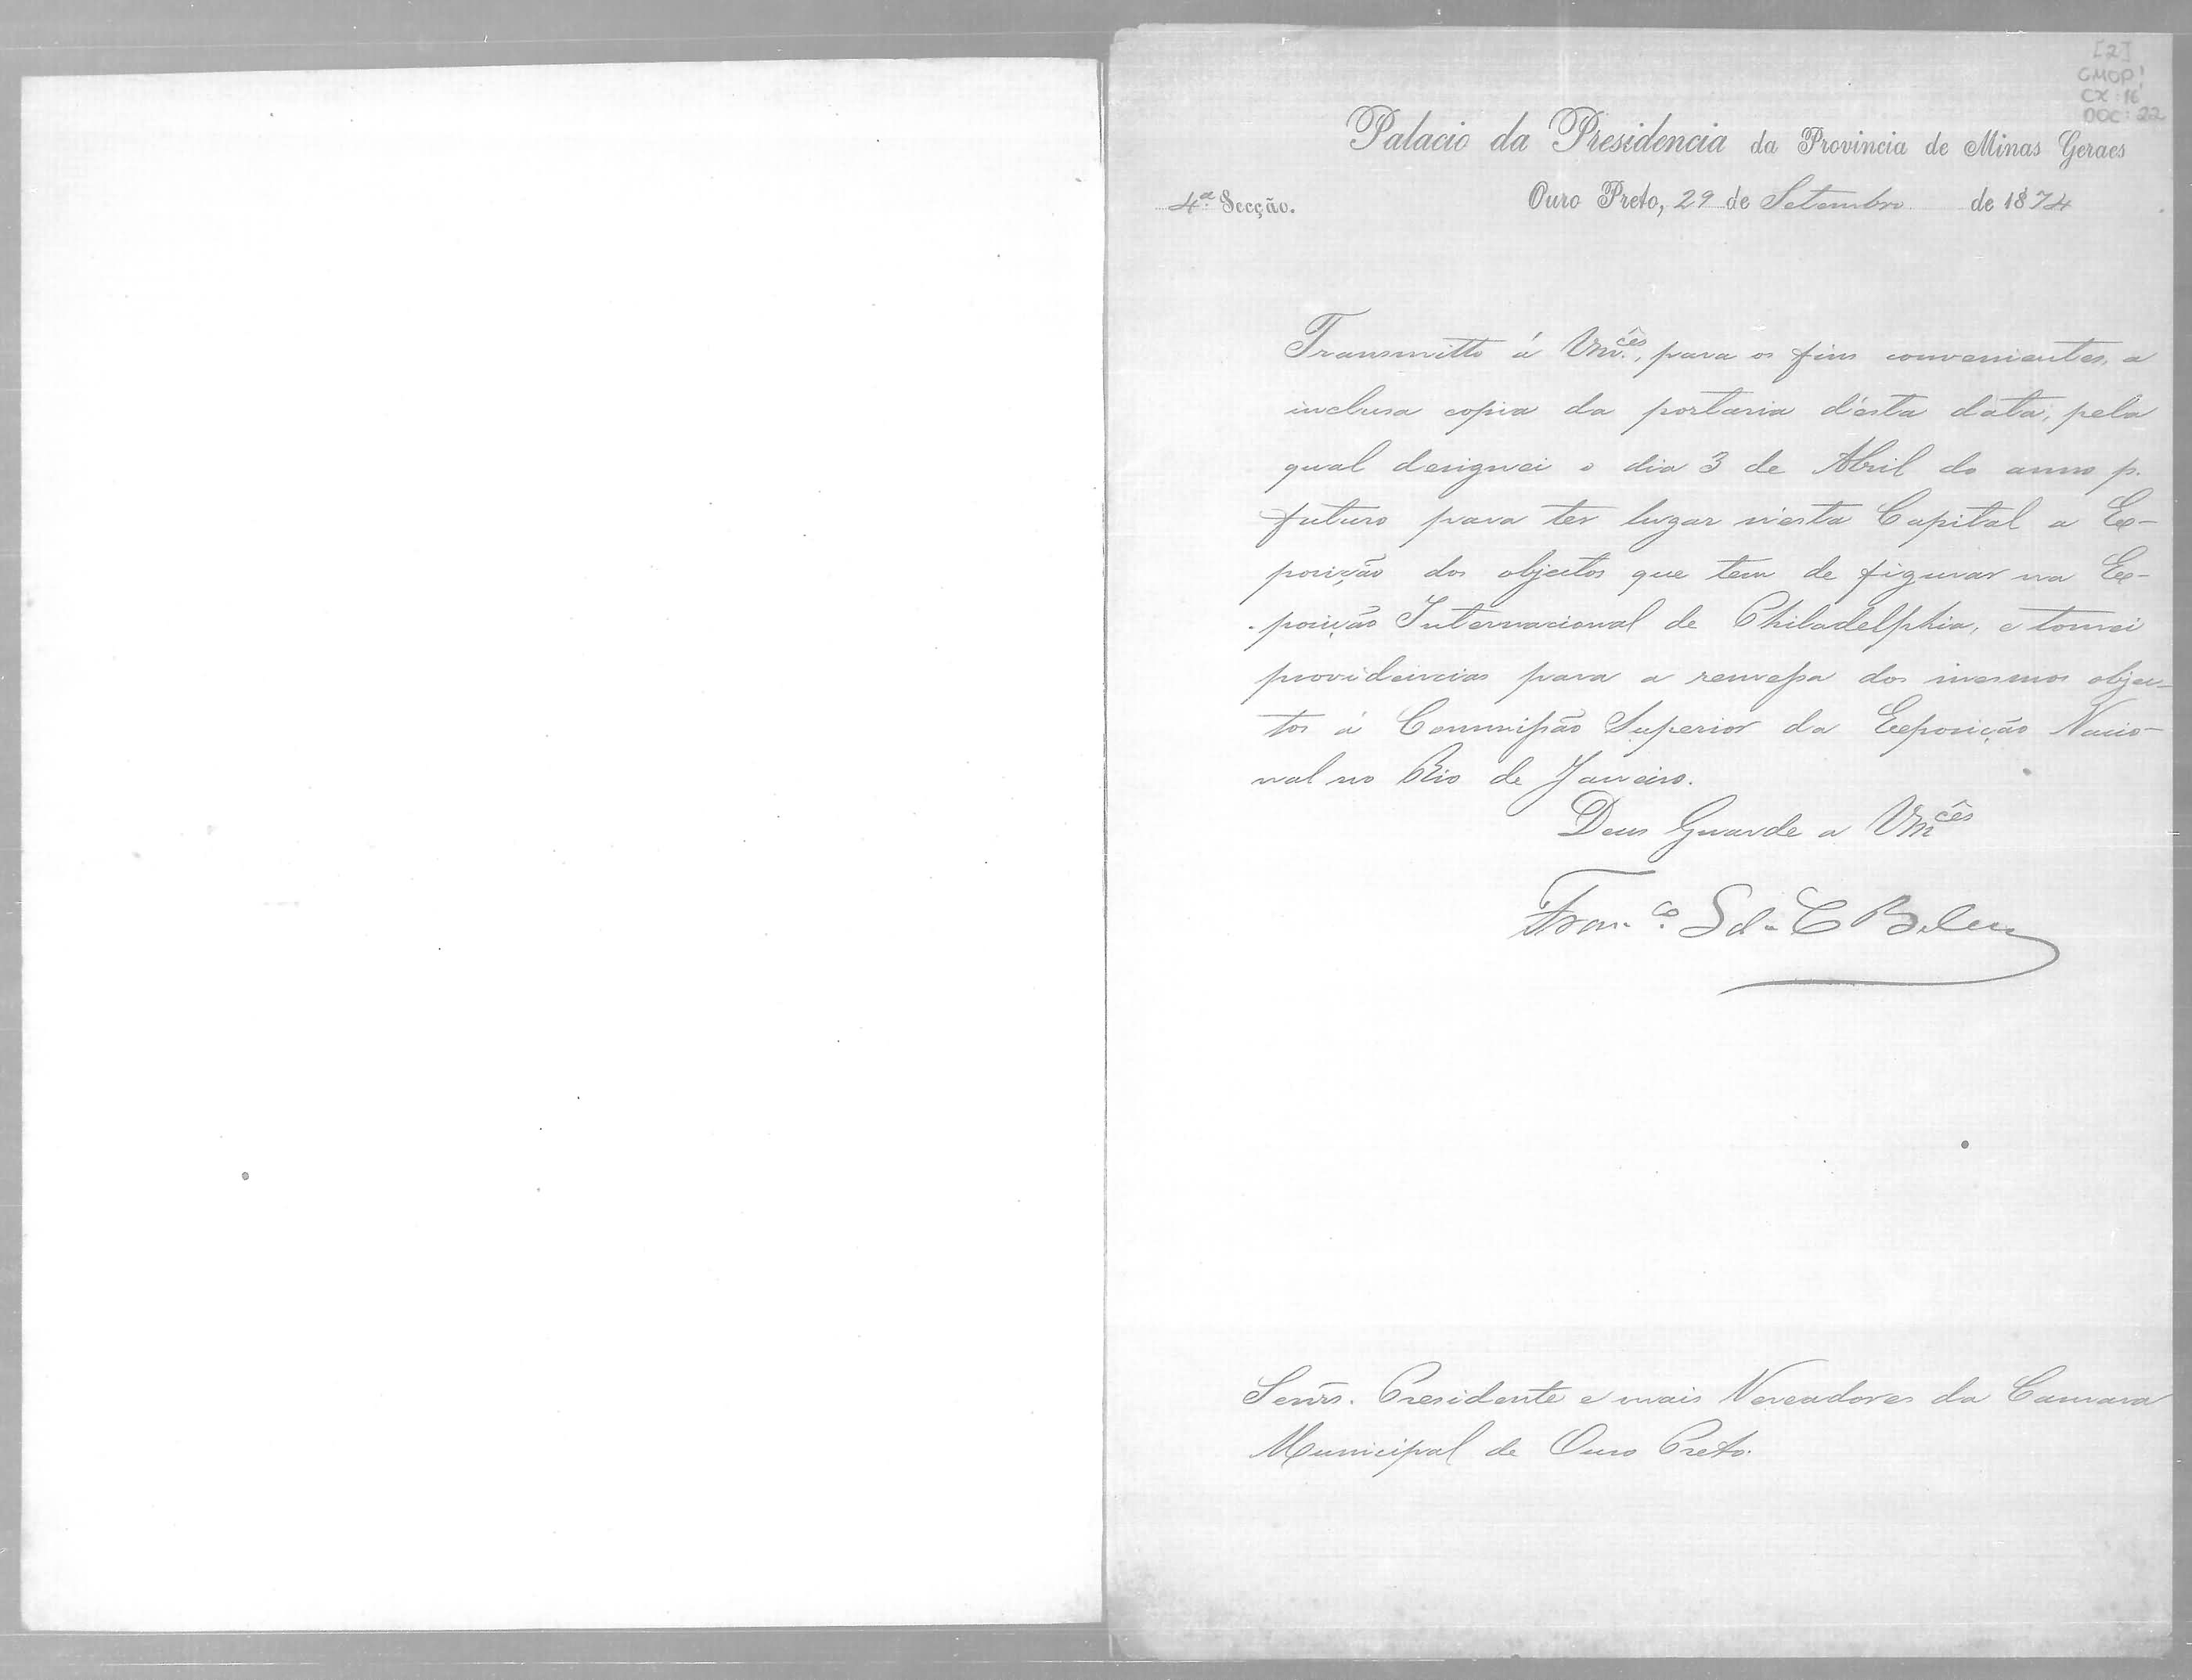 [2]
CMOP
CX: 16
DOC: 22
Palacio da Presidencia da Provincia de Minas Geraes
4ª Secção. Ouro Preto, 29 de Setembro de 1874
Transmitto á Vmcês, para os fins convenientes, a
inclusa copia da portaria d'esta data, pela
qual designei o dia 3 de Abril do anno p.
futuro para ter lugar n'esta Capital a Ex-
posição dos objectos que tem de figurar na Ex-
posição Internacional de Philadelphia, e tomei
providencias para a remessa dos mesmos objec-
tos á Commissão Superior da Exposição Nacio-
nal no Rio de Janeiro.
Deus Guarde a Vmcês
Franco. S da C Belem
Senrs. Presidente e mais Vereadores da Camara
Municipal de Ouro Preto.